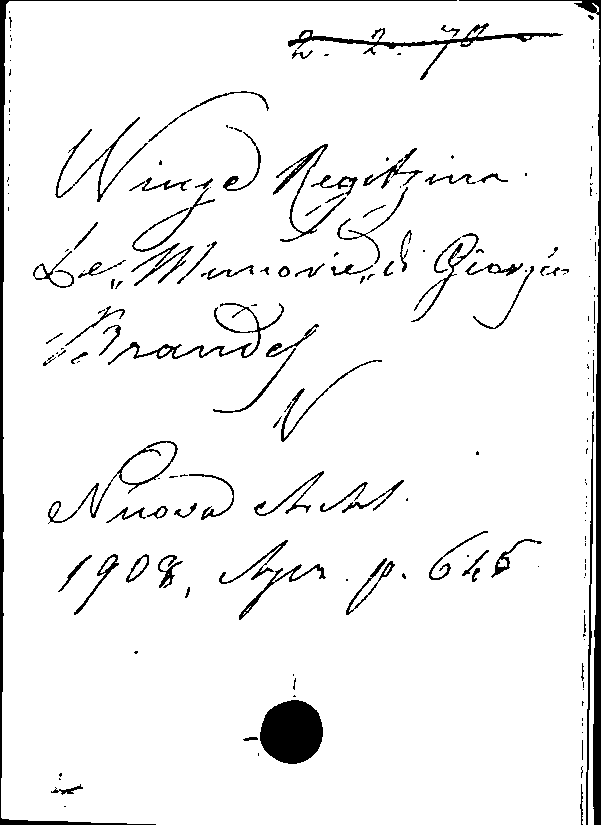 2. 2. 70
Winge Regitzina.
Le „Memorie„ di Giorgio
Brandes
N
Nuova Ant.
1908, Apr. p. 645